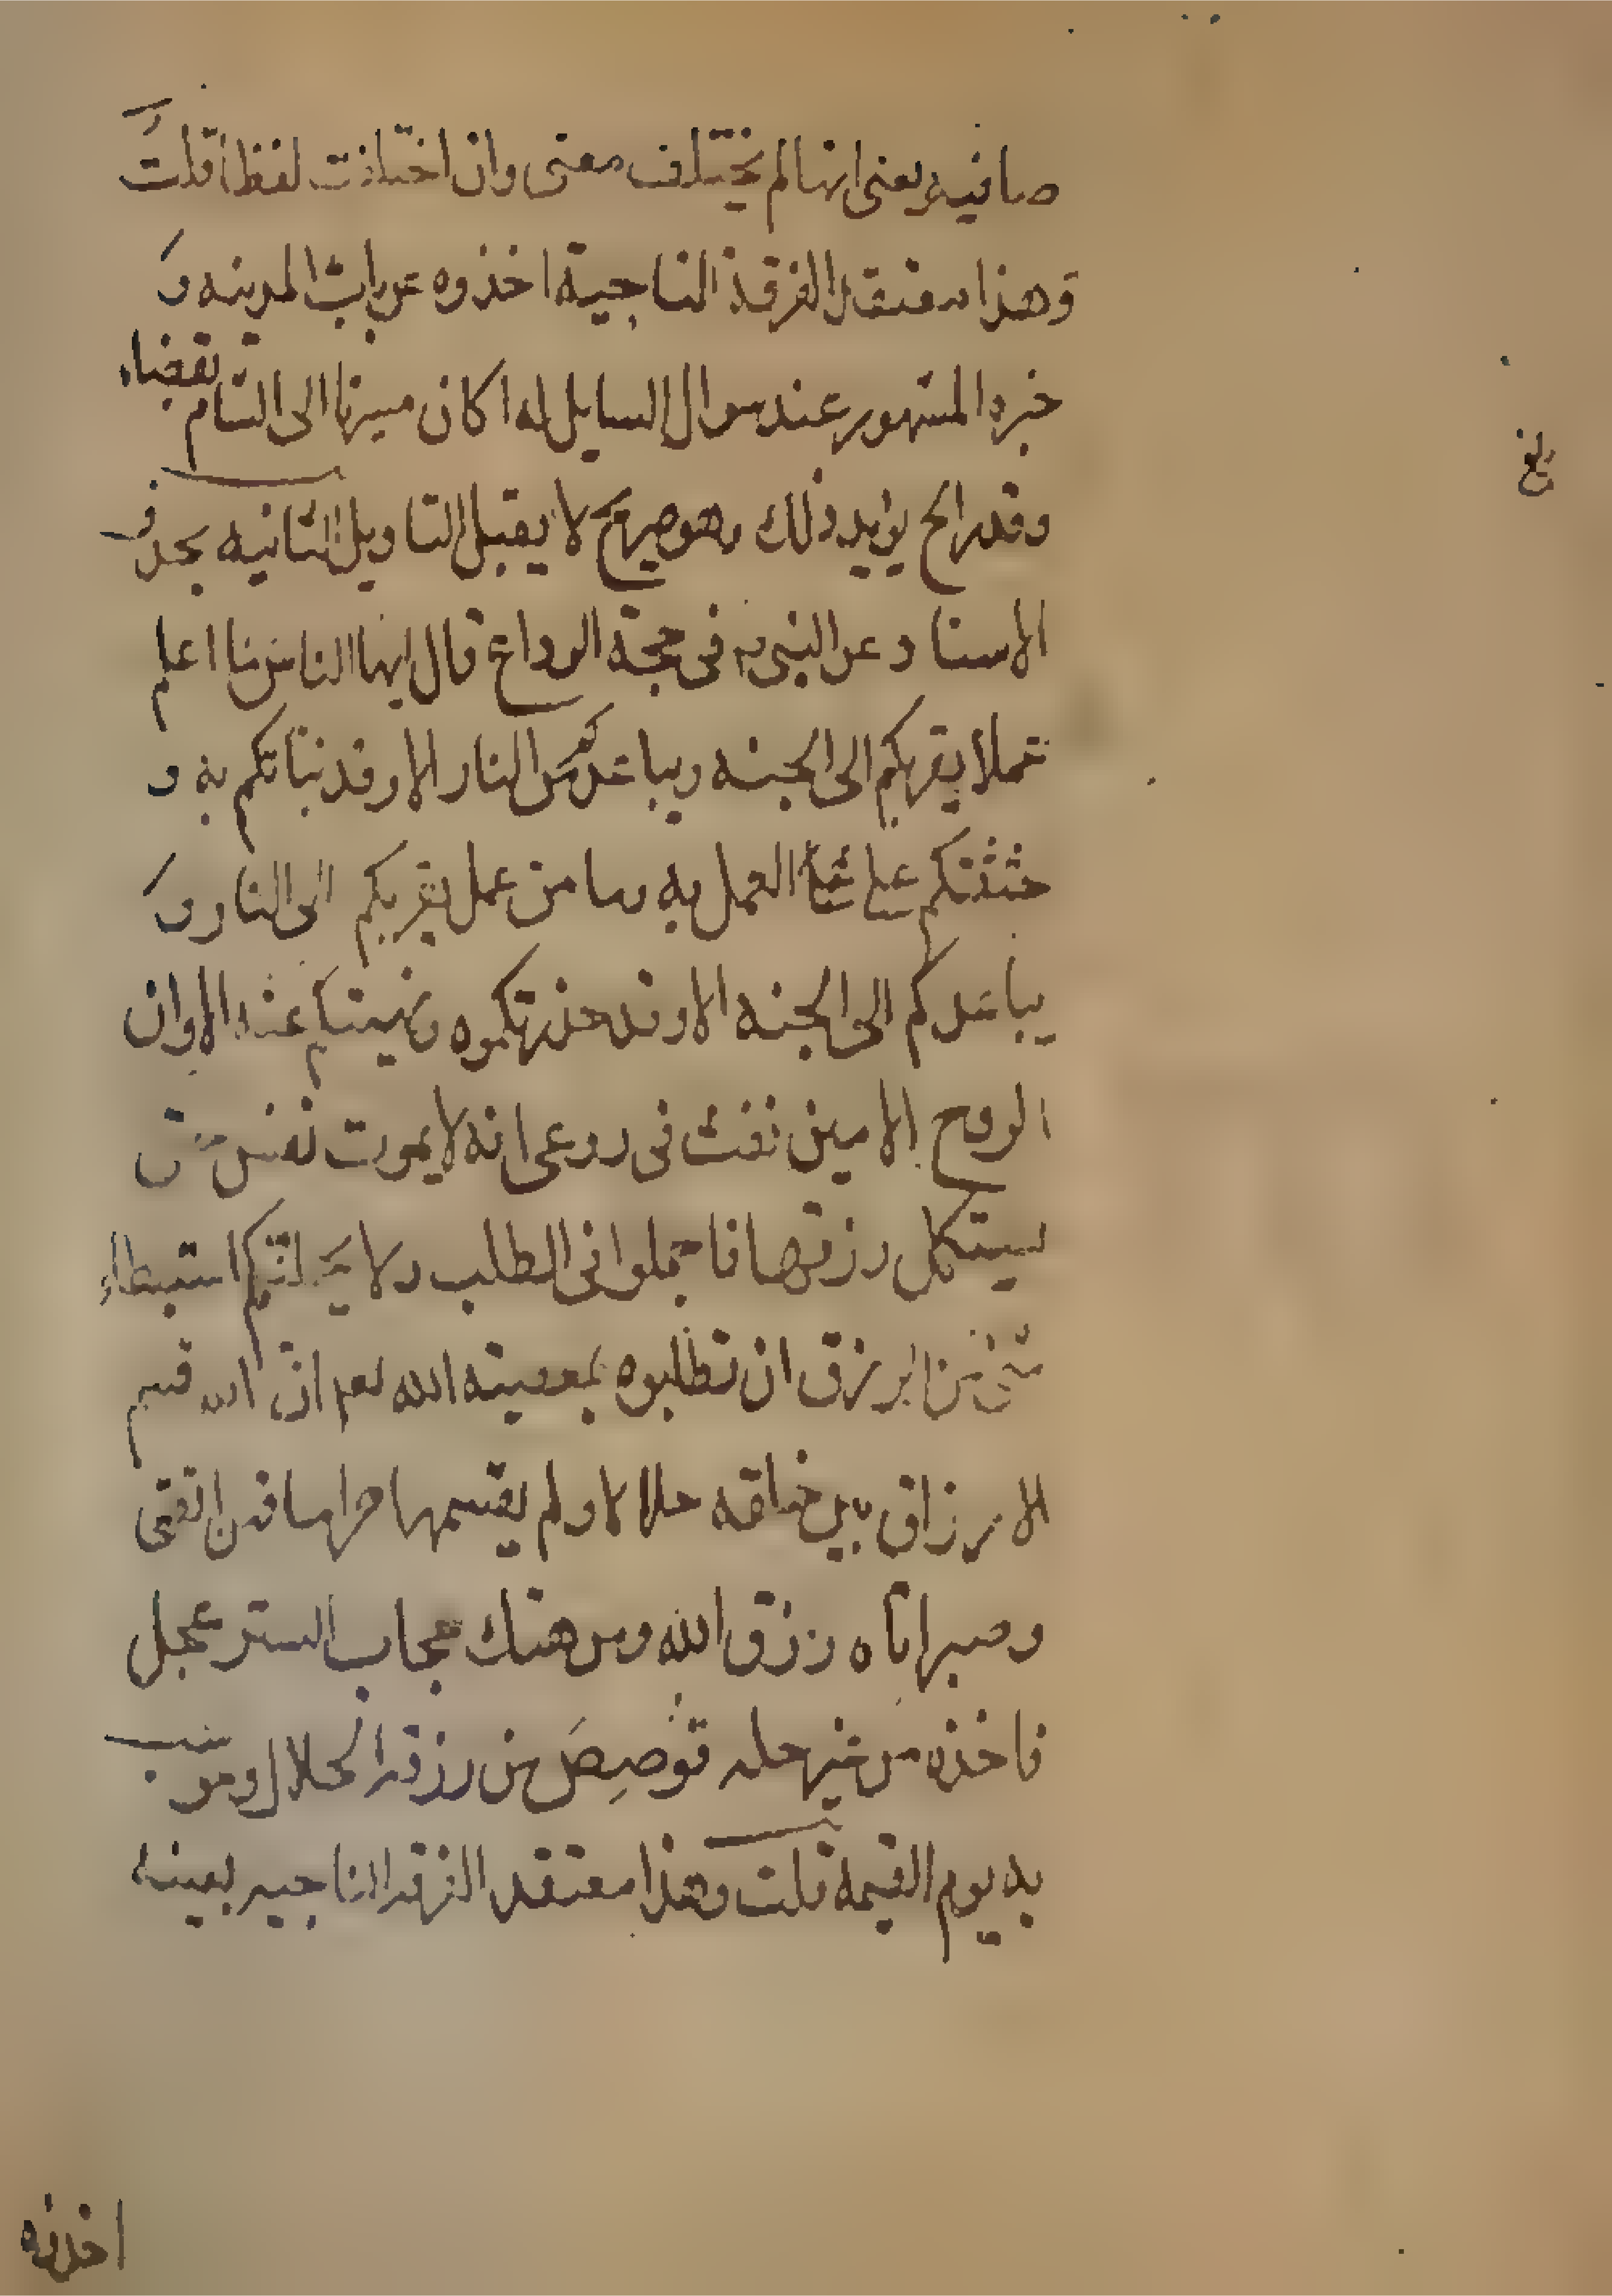 صافيه ويعنى انها لم يختلف معنى وان اختلفت لفظا قلت
وهذا معتقد الفرقة الناجية اخذوه عن باب المدينه و
خبره المشهور عند سوال السايل له اكان مسيرنا الى الشام بقضاء
وقدر الخ يويد ذلك وهو صريح لا يقبل التاويل الثانيه بحذف
الاسناد عن النبى ص فى حجة الوداع قال ايها الناس ما اعلم
عملا يقربكم الى الجنه ويباعدكم من النار الا وقد نباتكم به و
حثثتكم على العمل به وما من عمل يقربكم الى النار و
يباعدكم الى الجنه الا وقد حذرتكموه ونهيتكم عنه الا وان
الروح الامين نفث فى روعى انه لا يموت نفس حتى
يستكمل رزقها فاجملوا فى الطلب ولا يحملنكم استبطاء
شئ من الرزق ان تطلبوه بمعصية الله فان الله قسم
الارزاق بين خلقه حلالا ولم يقسمها حراما فمن اتقى
وصبر اتاه رزق الله ومن هتك حجاب الستر عجل
فاخذه من غير حله قوصص من رزقه الحلال وحوسب
به يوم القيمة قلت وهذا معتقد الفرقه الناجيه بعينه
بلغ
اخذته